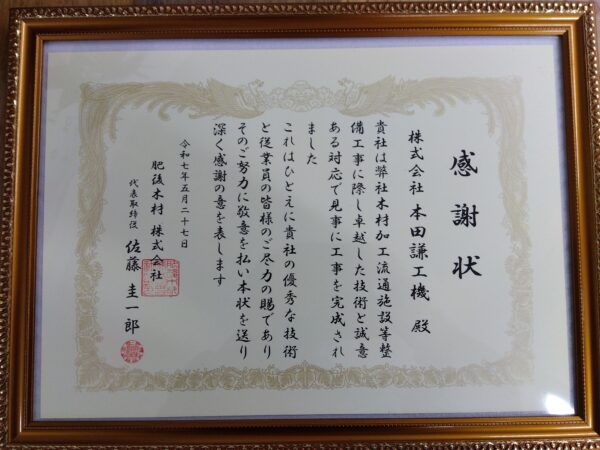 感謝状
株式会社 本田謙工機 殿
貴社は弊社木材加工流通施設等整
備工事に際し卓越した技術と誠意
ある対応で見事に工事を完成され
ました
これはひとえに貴社の優秀な技術
と従業員の皆様のご尽力の賜であり
そのご努力に敬意を払い本状を送り
深く感謝の意を表します
令和七年五月二十七日
肥後木村 株式会社
代表取締役 佐藤 圭一郎